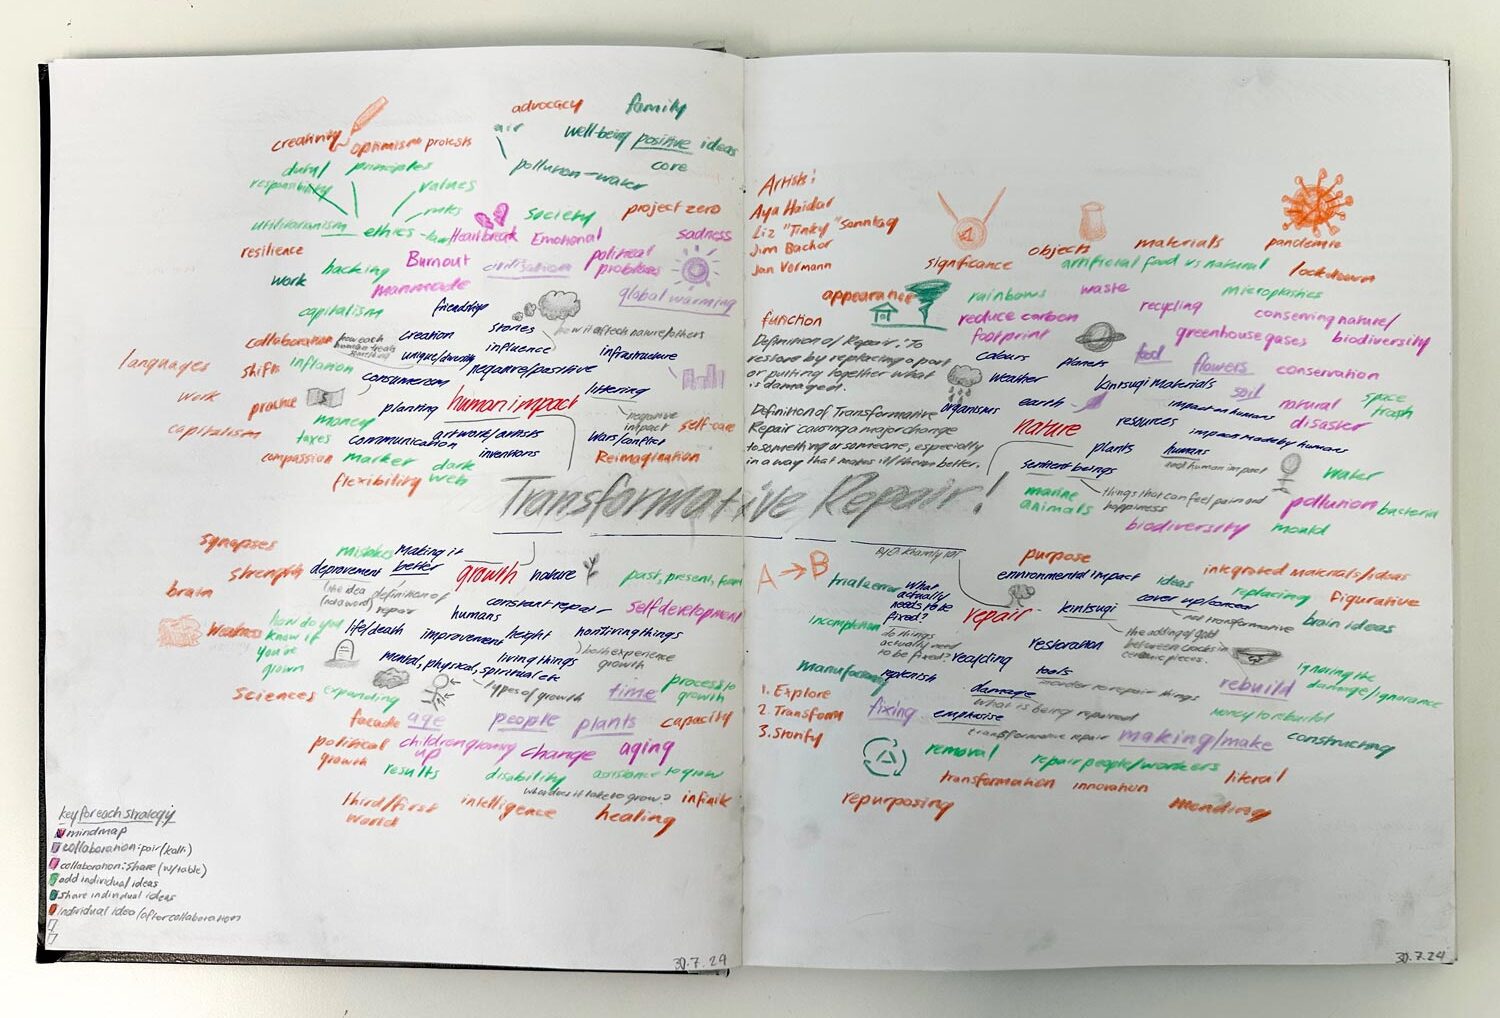 advocacy
family
air
well-being positive ideas
core
pollution-water
creativity
optimism protests
duty/
responsibility
principles
values
utilitarianism
ethics
Heartbreak
society
project zero
Emotional
sadness
resilience
Burnout
civilisation
political
problems
work
hacking
manmade
global warming
capitalism
friendship
stories
how it affects nature/others
collaboration
creation
influence
infrastructure
languages
shifts
inflation
unique/diversity
negative/positive
consumerism
littering
work
practice
planting
human impact
negative
impact
self-care
money
artwork/artists
wars/conflict
capitalism
taxes
communication
inventions
Reimagination
compassion
market
dark
web
flexibility
Transformative Repair!
synapses
mistakes
making it
better
strength
improvement
growth
nature
past, present, future
brain
(the idea
(not a word)
definition of
repair
constant repair
self development
humans
Weakness
how do you
know if
you've
grown
life/death
improvement
height
nonliving things
both experience
growth
living things
mental, physical, spiritual etc
types of growth
time
process to
growth
sciences
expanding
facade
age
people
plants
capacity
political
growth
children growing
up
change
aging
results
disability
assistance to grow
what does it take to grow?
infinite
third/first
world
intelligence
healing
key for each strategy
mindmap
collaboration: pair (kalli)
collaboration: share (w/table)
add individual ideas
share individual ideas
individual idea/after collaboration
30.7.24
Artists:
Aya Haidar
Liz "Tinky" Sonntag
Jim Bachor
Jan Vormann
significance
objects
materials
pandemic
artificial food vs natural
lockdown
appearance
rainbows
waste
microplastics
function
reduce carbon
footprint
recycling
conserving nature/
biodiversity
greenhouse gases
Definition of Repair: To
restore by replacing a part
or putting together what
is damaged.
colours
planets
food
flowers
conservation
weather
kintsugi materials
soil
natural
disaster
space
trash
organisms
earth
impact on humans
Definition of Transformative
Repair: causing a major change
to something or someone, especially
in a way that makes it/them better.
nature
resources
impact made by humans
plants
humans
not human impact
sentient beings
things that can feel pain and
happiness
water
marine
animals
pollution
bacteria
biodiversity
mould
A → B
purpose
trial+error
what
actually
needs to be
fixed?
environmental impact
ideas
integrated materials/ideas
replacing
figurative
incompletion
repair
kintsugi
cover up/conceal
not transformative
brain ideas
do things
actually need
to be fixed?
the adding of gold
between cracks in
ceramic pieces.
recycling
restoration
manufacturing
replenish
tools
used to repair things
ignoring the
damage/ignorance
1. Explore
2. Transform
3. Storify
damage
what is being repaired
rebuild
fixing
emphasise
transformative repair
money to rebuild
making/make
constructing
removal
repair people/workers
transformation
innovation
literal
repurposing
mending
30.7.24